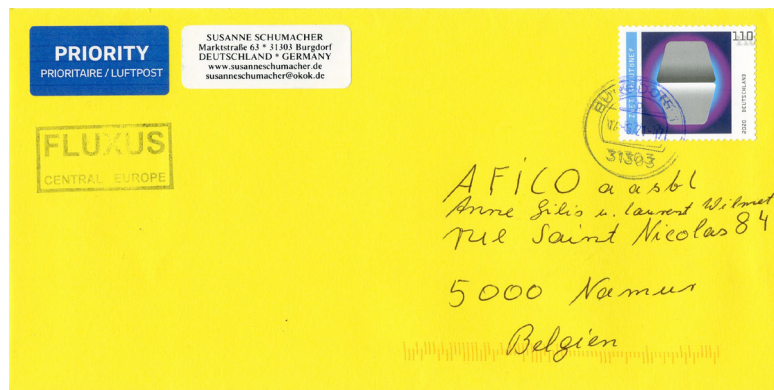 PRIORITY
PRIORITAIRE / LUFTPOST
SUSANNE SCHUMACHER
Marktstraße 63 * 31303 Burgdorf
DEUTSCHLAND * GERMANY
www.susanneschumacher.de
susanneschumacher@okok.de
110
DEUTSCHLAND
2020
31303
FLUXUS
CENTRAL EUROPE
AFiCO aasbl
Anne Gilis u. laurent Wilmet
rue Saint Nicolas 84
5000 Namur
Belgien